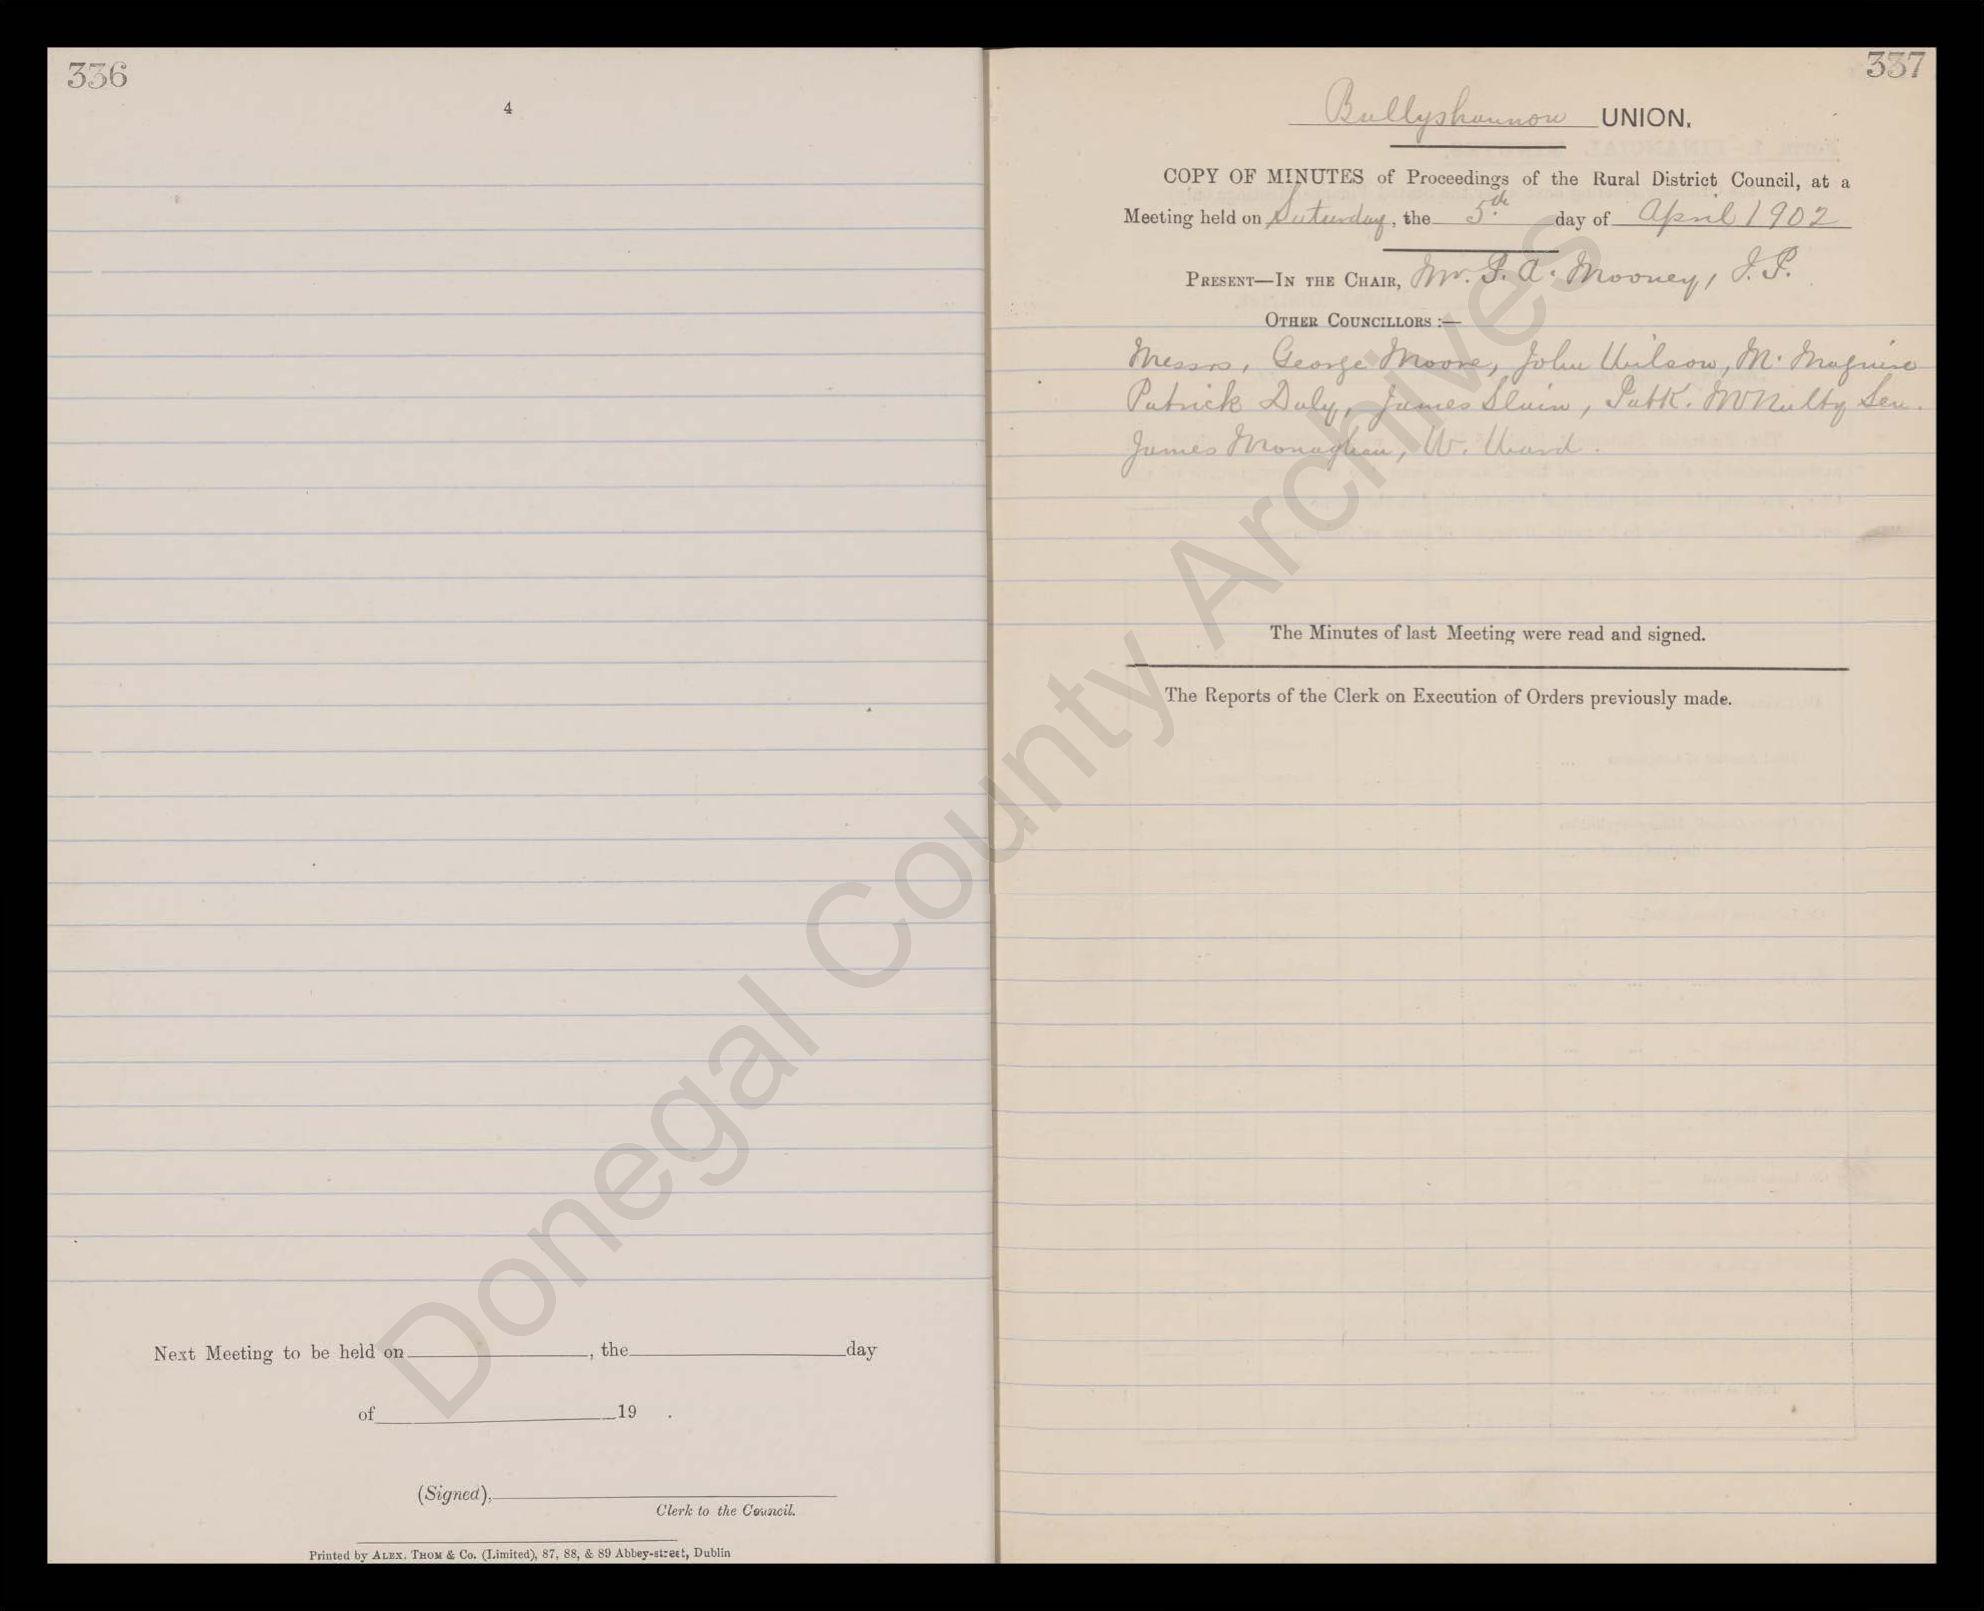 336
4
Next Meeting to be held on , the day
of 19 .
(Signed),
Clerk to the Council.
Printed by ALEX. THOM & Co. (Limited), 87, 88, & 89 Abbey-street, Dublin
337
Ballyshannon UNION.
COPY OF MINUTES of Proceedings of the Rural District Council, at a
Meeting held on Saturday, the 5th day of April 1902
PRESENT—IN THE CHAIR, Mr. P. A. Mooney, J. P.
OTHER COUNCILLORS :—
Messrs, George Moore, John Wilson, M. Maguire
Patrick Daly, James Slevin, Patk. McNulty Sen.
James Monaghan, W. Ward.
The Minutes of last Meeting were read and signed.
The Reports of the Clerk on Execution of Orders previously made.
Donegal County Archives